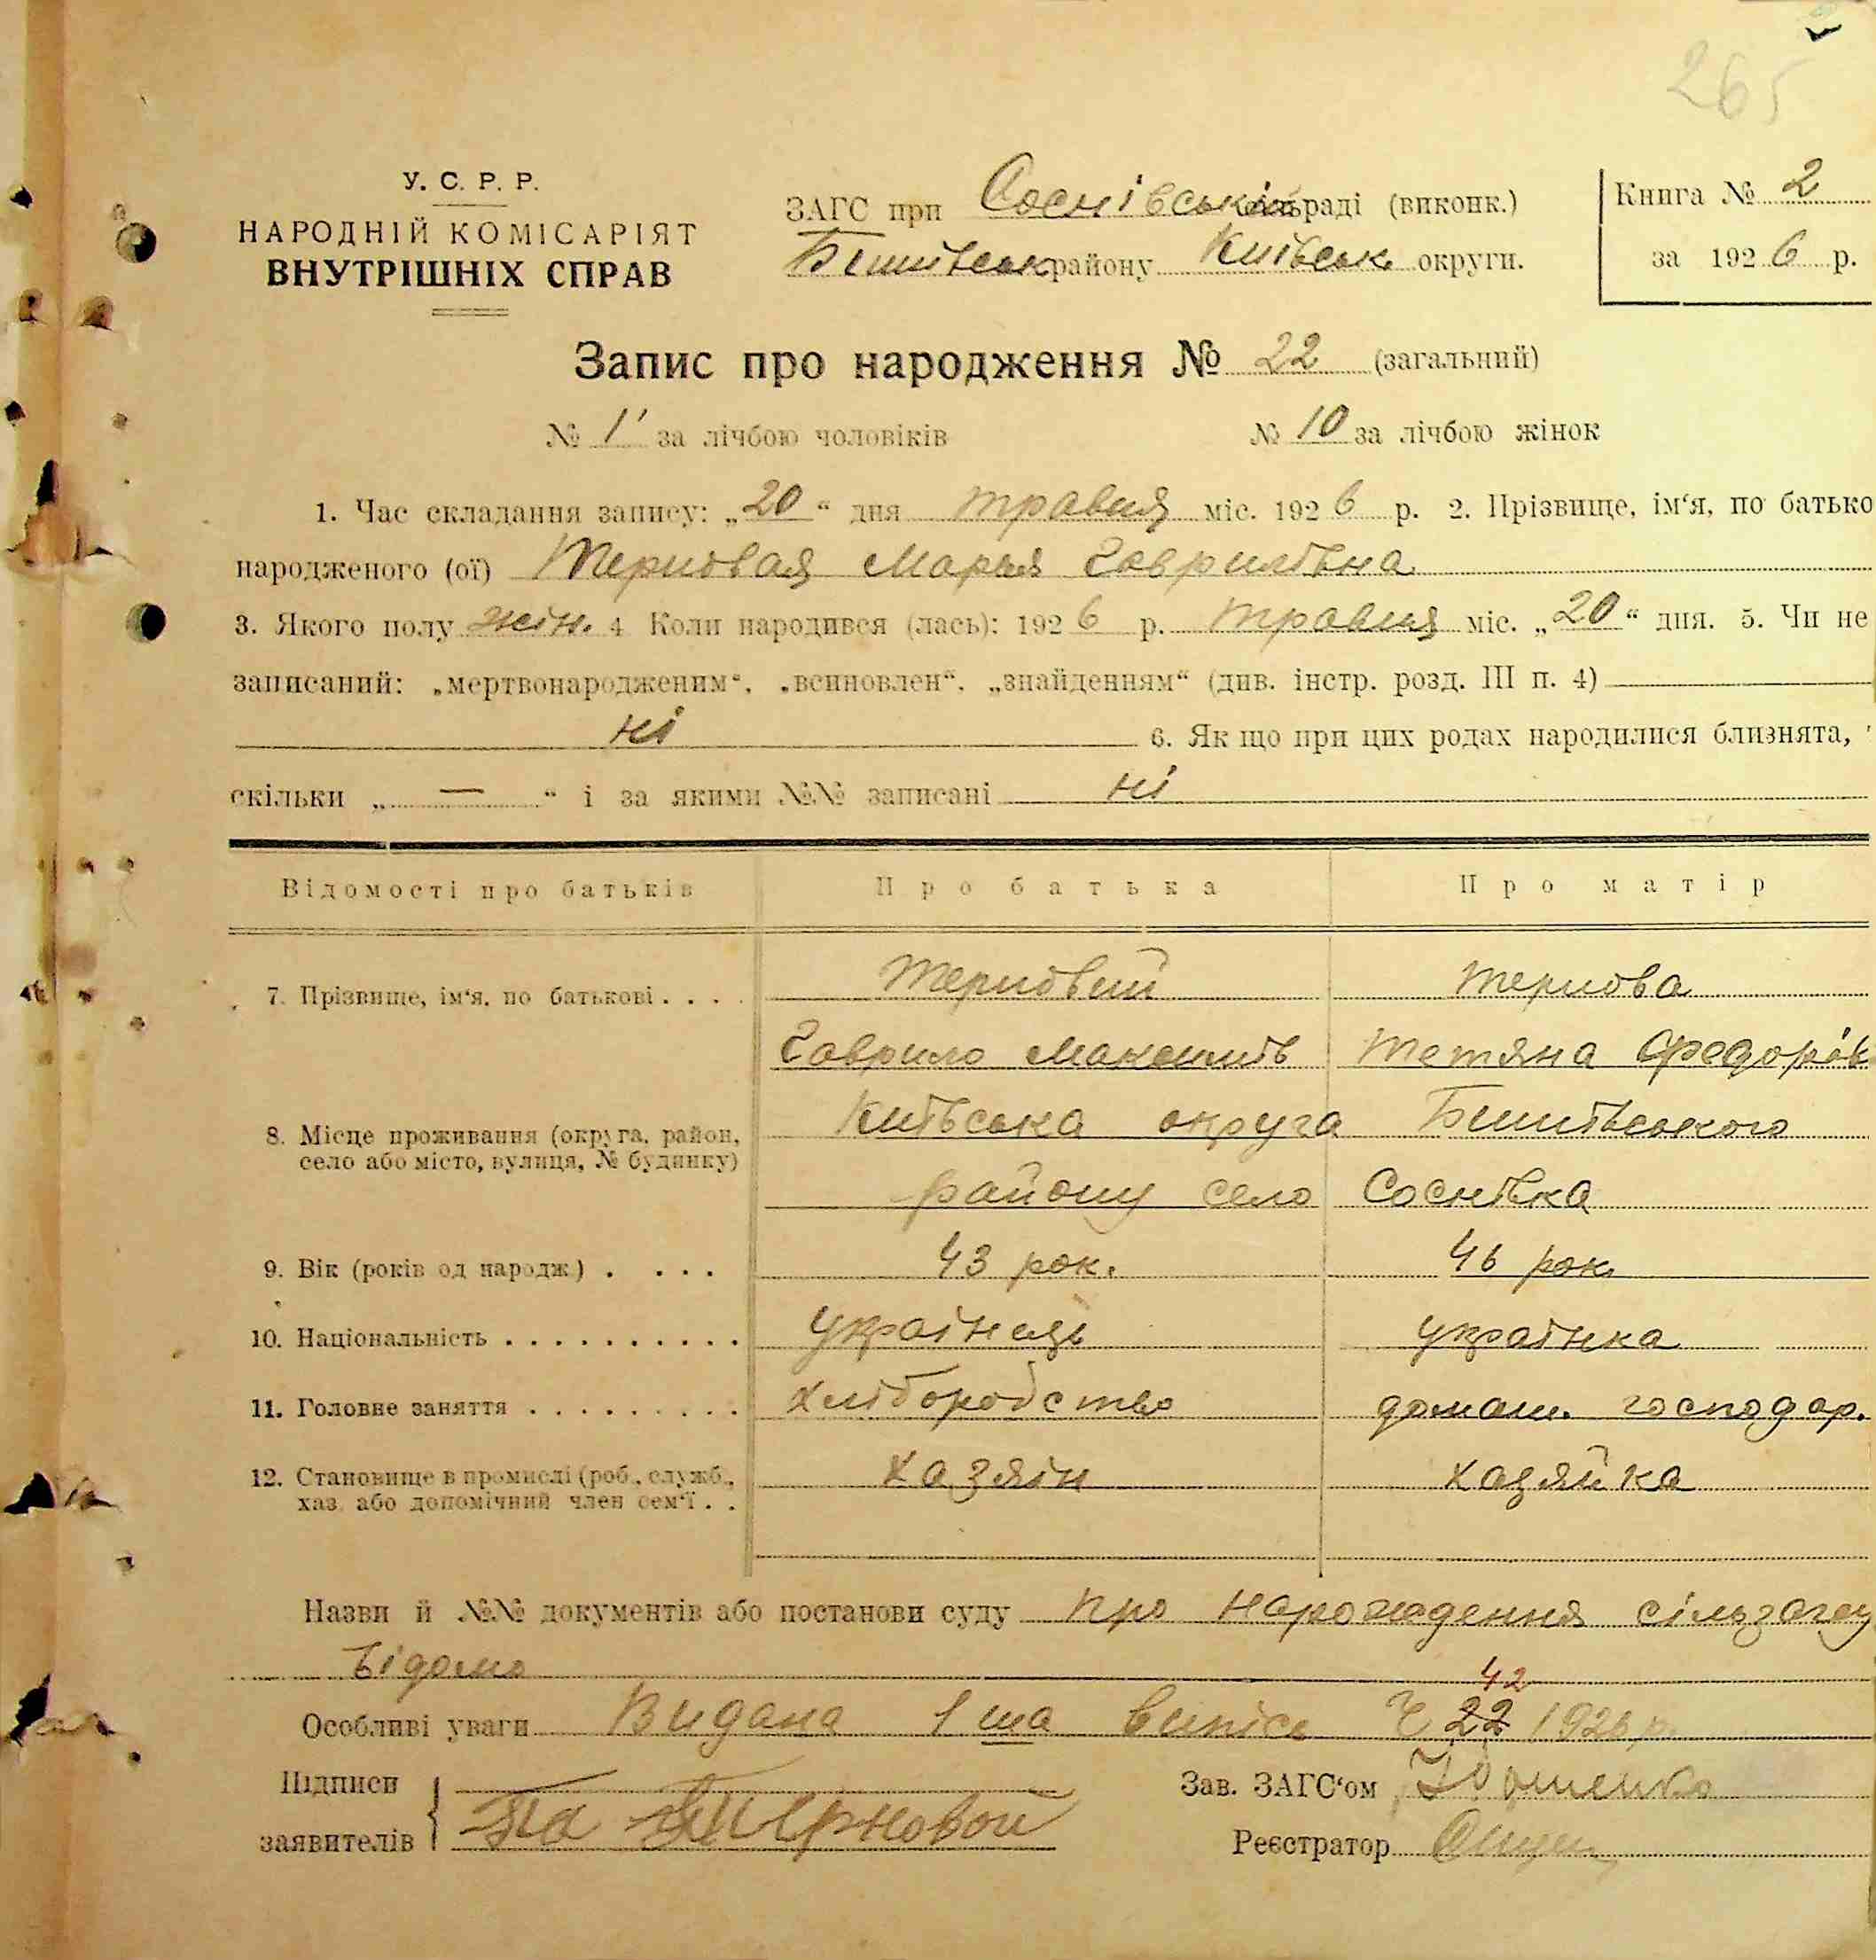 265
У. С. Р. Р.
НАРОДНІЙ КОМІСАРІЯТ
ВНУТРІШНІХ СПРАВ
ЗАГС при Соснівській раді (виконк.)
Бишівськ району Київськ округи.
Книга № 2
за 1926 р.
Запис про народження № 22 (загальний)
№ 1 за лічбою чоловіків № 10 за лічбою жінок
1. Час складання запису: „20“ дня травня міс. 1926 р. 2. Прізвище, ім‘я, по батько
народженого (ої) Терновая Марья Гаврилівна
3. Якого полу жін. 4 Коли народився (лась): 1926 р. травня міс. „20“ дня. 5. Чи не
записаний: „мертвонародженим“, „всиновлен“, „знайденням“ (див. інстр. розд. III п. 4)
ні 6. Як що при цих родах народилися близнята,
скільки „ — “ і за якими №№ записані ні
Відомості про батьків Про батька Про матір
7. Прізвище, ім‘я, по батькові . . . . Терновий Тернова
Гаврило Максимів Тетяна Федорівк
8. Місце проживання (округа, район, Київська округа Бишівського
село або місто, вулиця, № будинку)
району село Соснівка
9. Вік (років од народж.) . . . . 43 рок. 46 рок.
10. Національність . . . . . . . . . . українець українка
11. Головне заняття . . . . . . . . . хліборобство домаш. господар.
12. Становище в промислі (роб., служб., хазяїн хазяйка
хаз. або допомічний член сем‘ї . .
Назви й №№ документів або постанови суду про народження сільзагсу
відомо
42
Особливі уваги Видана 1 ша випісь Ч 22 1926 р.
Підписи
заявителів Терновой
Зав. ЗАГС‘ом
Реєстратор